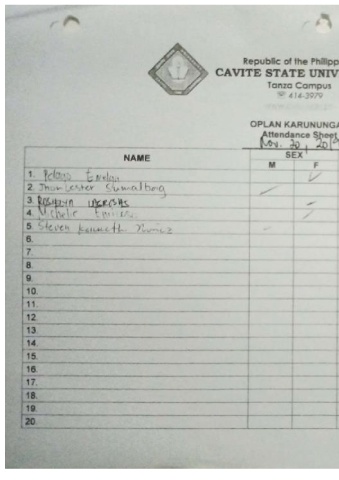 Republic of the Philipp
CAVITE STATE UNIV
Tanza Campus
☏ 414-3979
OPLAN KARUNUNGA
Attendance Sheet
Nov. 20, 201
NAME SEX
M F
1. Pelagio
2. Jhon Lester Sumalbag
3.
4. Michelle
5. Steven Kenneth
6.
7.
8.
9.
10.
11.
12.
13.
14.
15.
16.
17.
18.
19.
20.